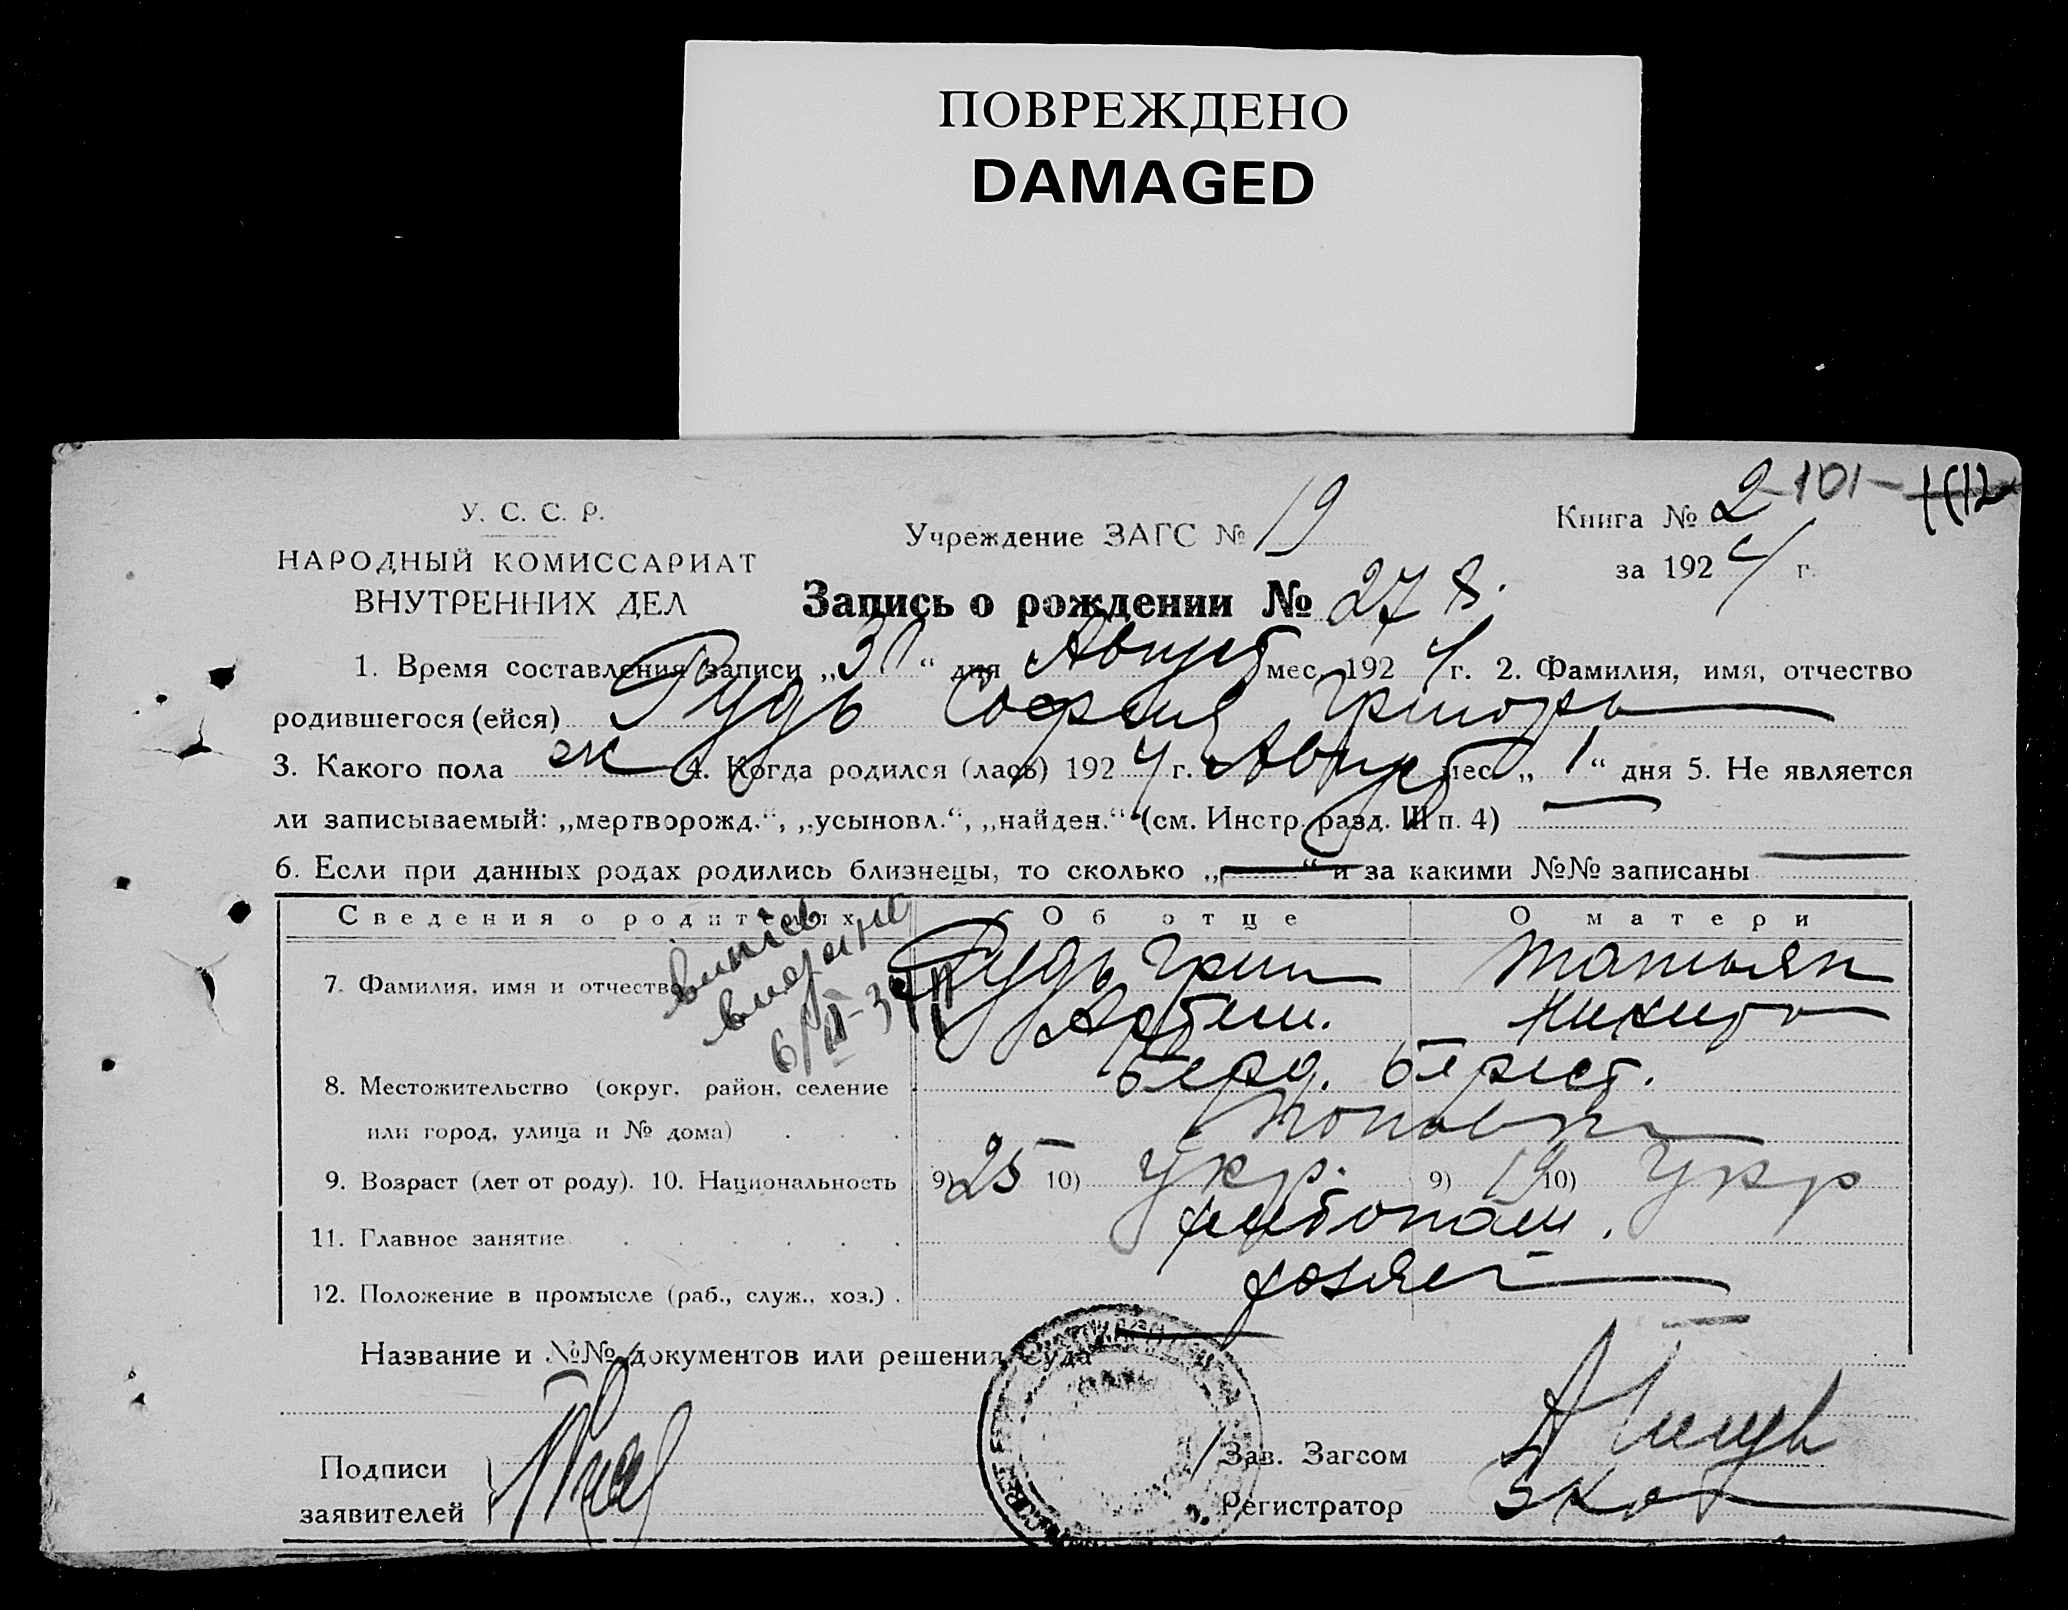 ПОВРЕЖДЕНО
DAMAGED
У. С. С. Р.
НАРОДНЫЙ КОМИССАРИАТ
ВНУТРЕННИХ ДЕЛ
Учреждение ЗАГС № 19
Книга № 2 101
за 1924 г.
Запись о рождении № 278.
1. Время составления записи „30“ дня Август мес. 1924 г. 2. Фамилия, имя, отчество
родившегося (ейся) Рудь София Григорь
3. Какого пола ж 4. Когда родился (лась) 1924 г. Август мес. „1“ дня 5. Не является
ли записываемый: „мертворожд.“, „усыновл.“, „найден.“ (см. Инстр. разд. III п. 4)
6. Если при данных родах родились близнецы, то сколько „—“ и за какими №№ записаны —
Сведения о родителях Об отце О матери
7. Фамилия, имя и отчество Рудь Григ Татьян
Артем. Никит
8. Местожительство (округ, район, селение Берд. Берест.
или город, улица и № дома)
9. Возраст (лет от роду). 10. Национальность 9) 25 10) Укр. 9) 19 10) Укр
11. Главное занятие хлебопаш.
12. Положение в промысле (раб., служ., хоз.) хозяев
Название и №№ документов или решения Суда
Подписи
заявителей
Зав. Загсом
Регистратор